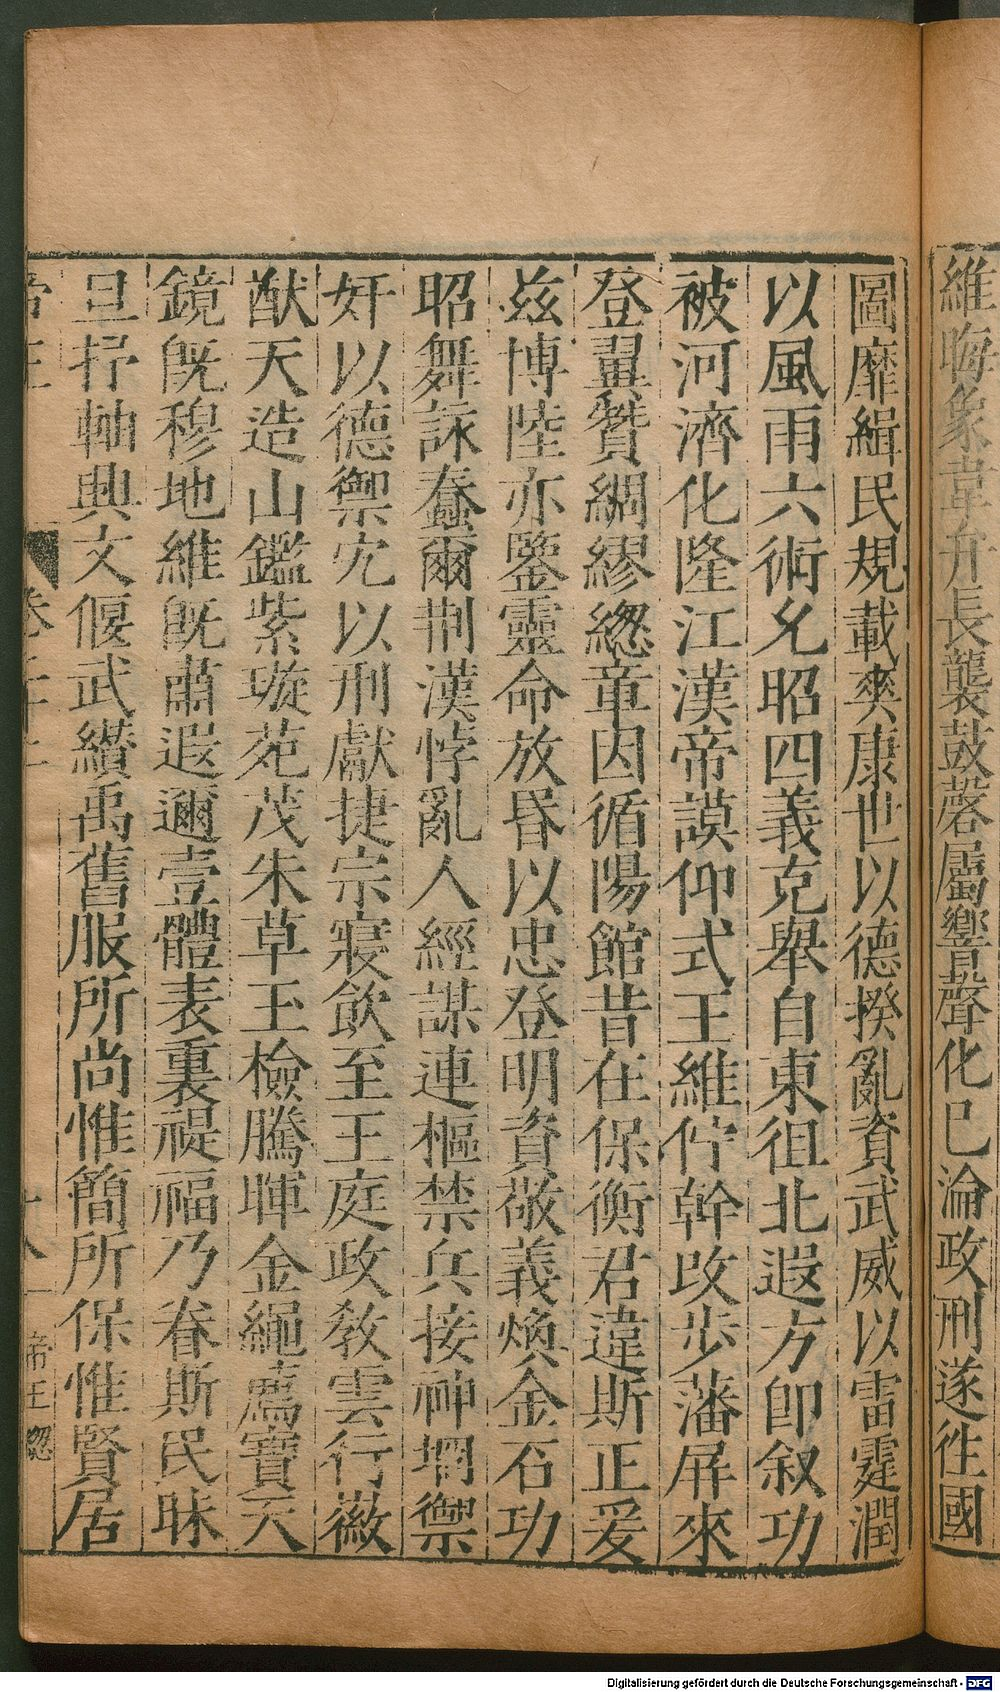 維晦象韋弁長襲鼓磬屬響聲化已淪政刑遂往國
圖靡緝民規載爽康世以德揆亂資武威以雷霆潤
以風雨六術允昭四義克舉自東徂北遐方卽叙功
被河濟化隆江漢帝謨仰式王維佇幹改步藩屏來
登翼贊綢繆緫章因循陽館昔在保衡君違斯正爰
兹博陸亦鑒靈命放昬以忠登明資敬義煥金石功
昭舞詠蠢爾荆漢悖亂人經謀連樞禁兵接神坰禦
奸以德禦宄以刑獻捷宗寢飲至王庭政教雲行徽
猷天造山鑑紫璇苑茂朱草玉檢騰暉金繩薦寶天
鏡旣穆地維旣肅遐邇壹體表裏禔福乃眷斯民昧
旦抒軸興文偃武纘禹舊服所尚惟簡所保惟賢居
帝王 卷二十上 十八 帝王緫
Digitalisierung gefördert durch die Deutsche Forschungsgemeinschaft - DFG